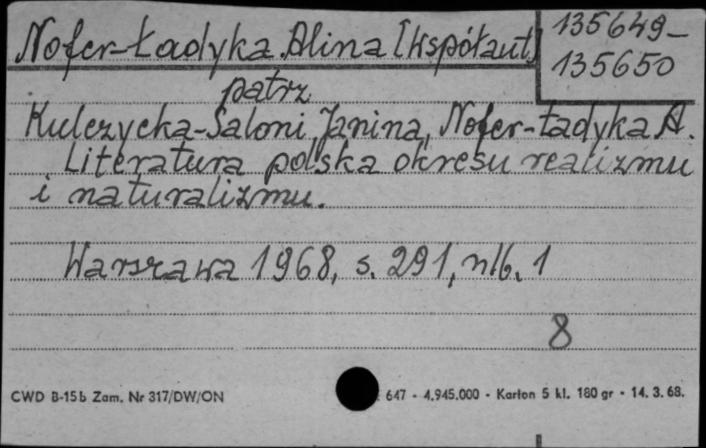 Nofer-Ładyka Alina [Współaut.]
135649-
135650
patrz
Kulczycka-Saloni Janina, Nofer-Ładyka A.
Literatura polska okresu realizmu
i naturalizmu.
Warszawa 1968, s. 291, nlb. 1
8
CWD B-15b Zam. Nr 317/DW/ON
647 - 4.945.000 - Karton 5 kl. 180 gr - 14. 3. 68.